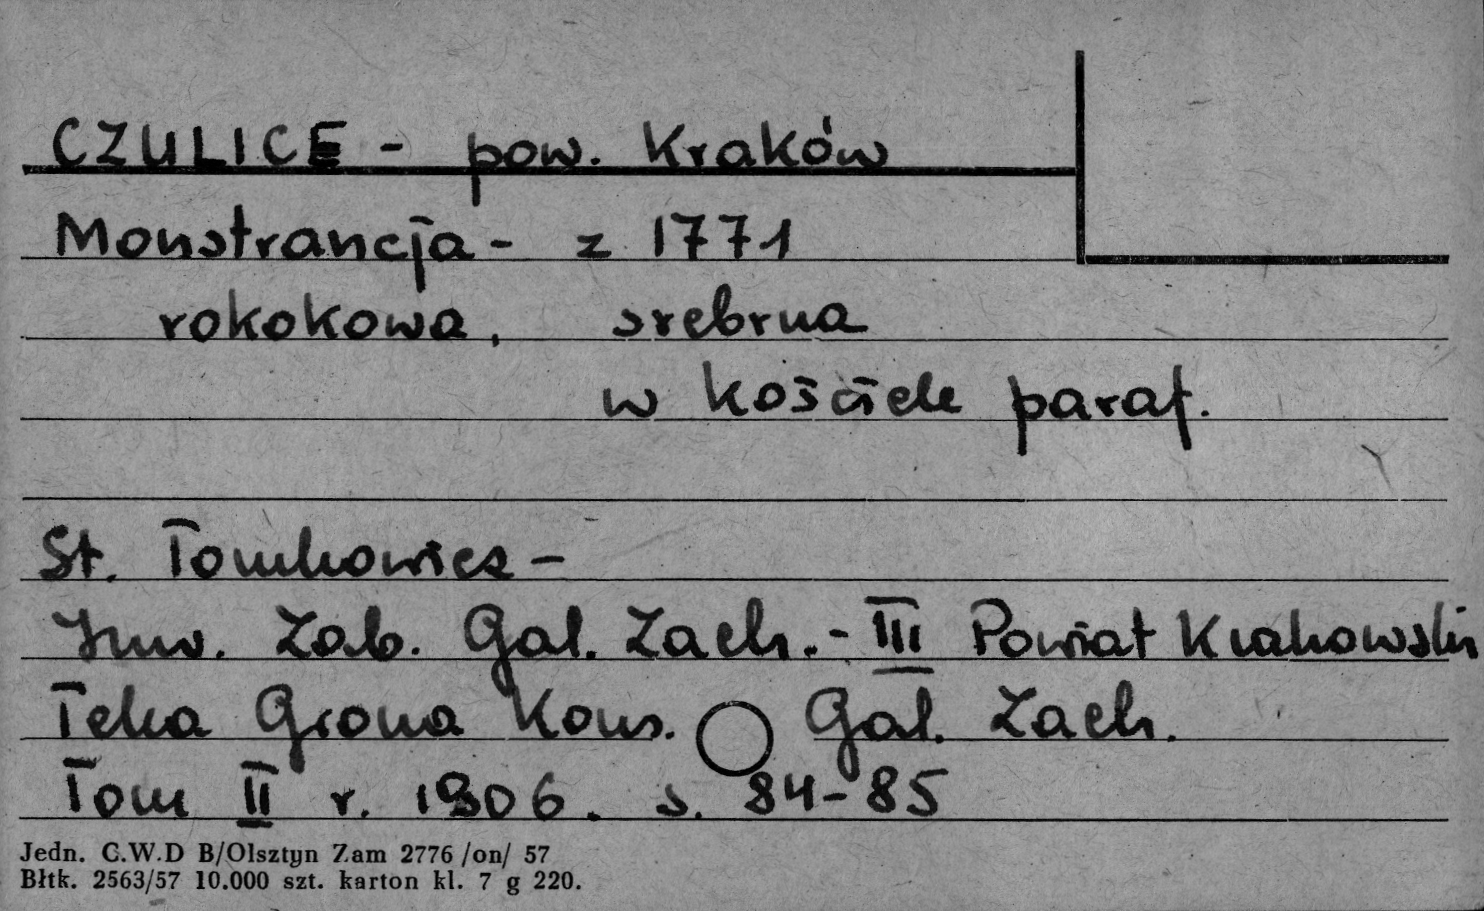 CZULICE - pow. Kraków
Monstrancja - z 1771
rokokowa, srebrna
w kościele paraf.
St. Tomkowicz -
Inw. Zab. Gal. Zach. - III Powiat Krakowski
Teka Grona Kons. Gal. Zach.
Tom II r. 1906. s. 84-85
Jedn. C.W.D B/Olsztyn Zam 2776 /on/ 57
Błtk. 2563/57 10.000 szt. karton kl. 7 g 220.